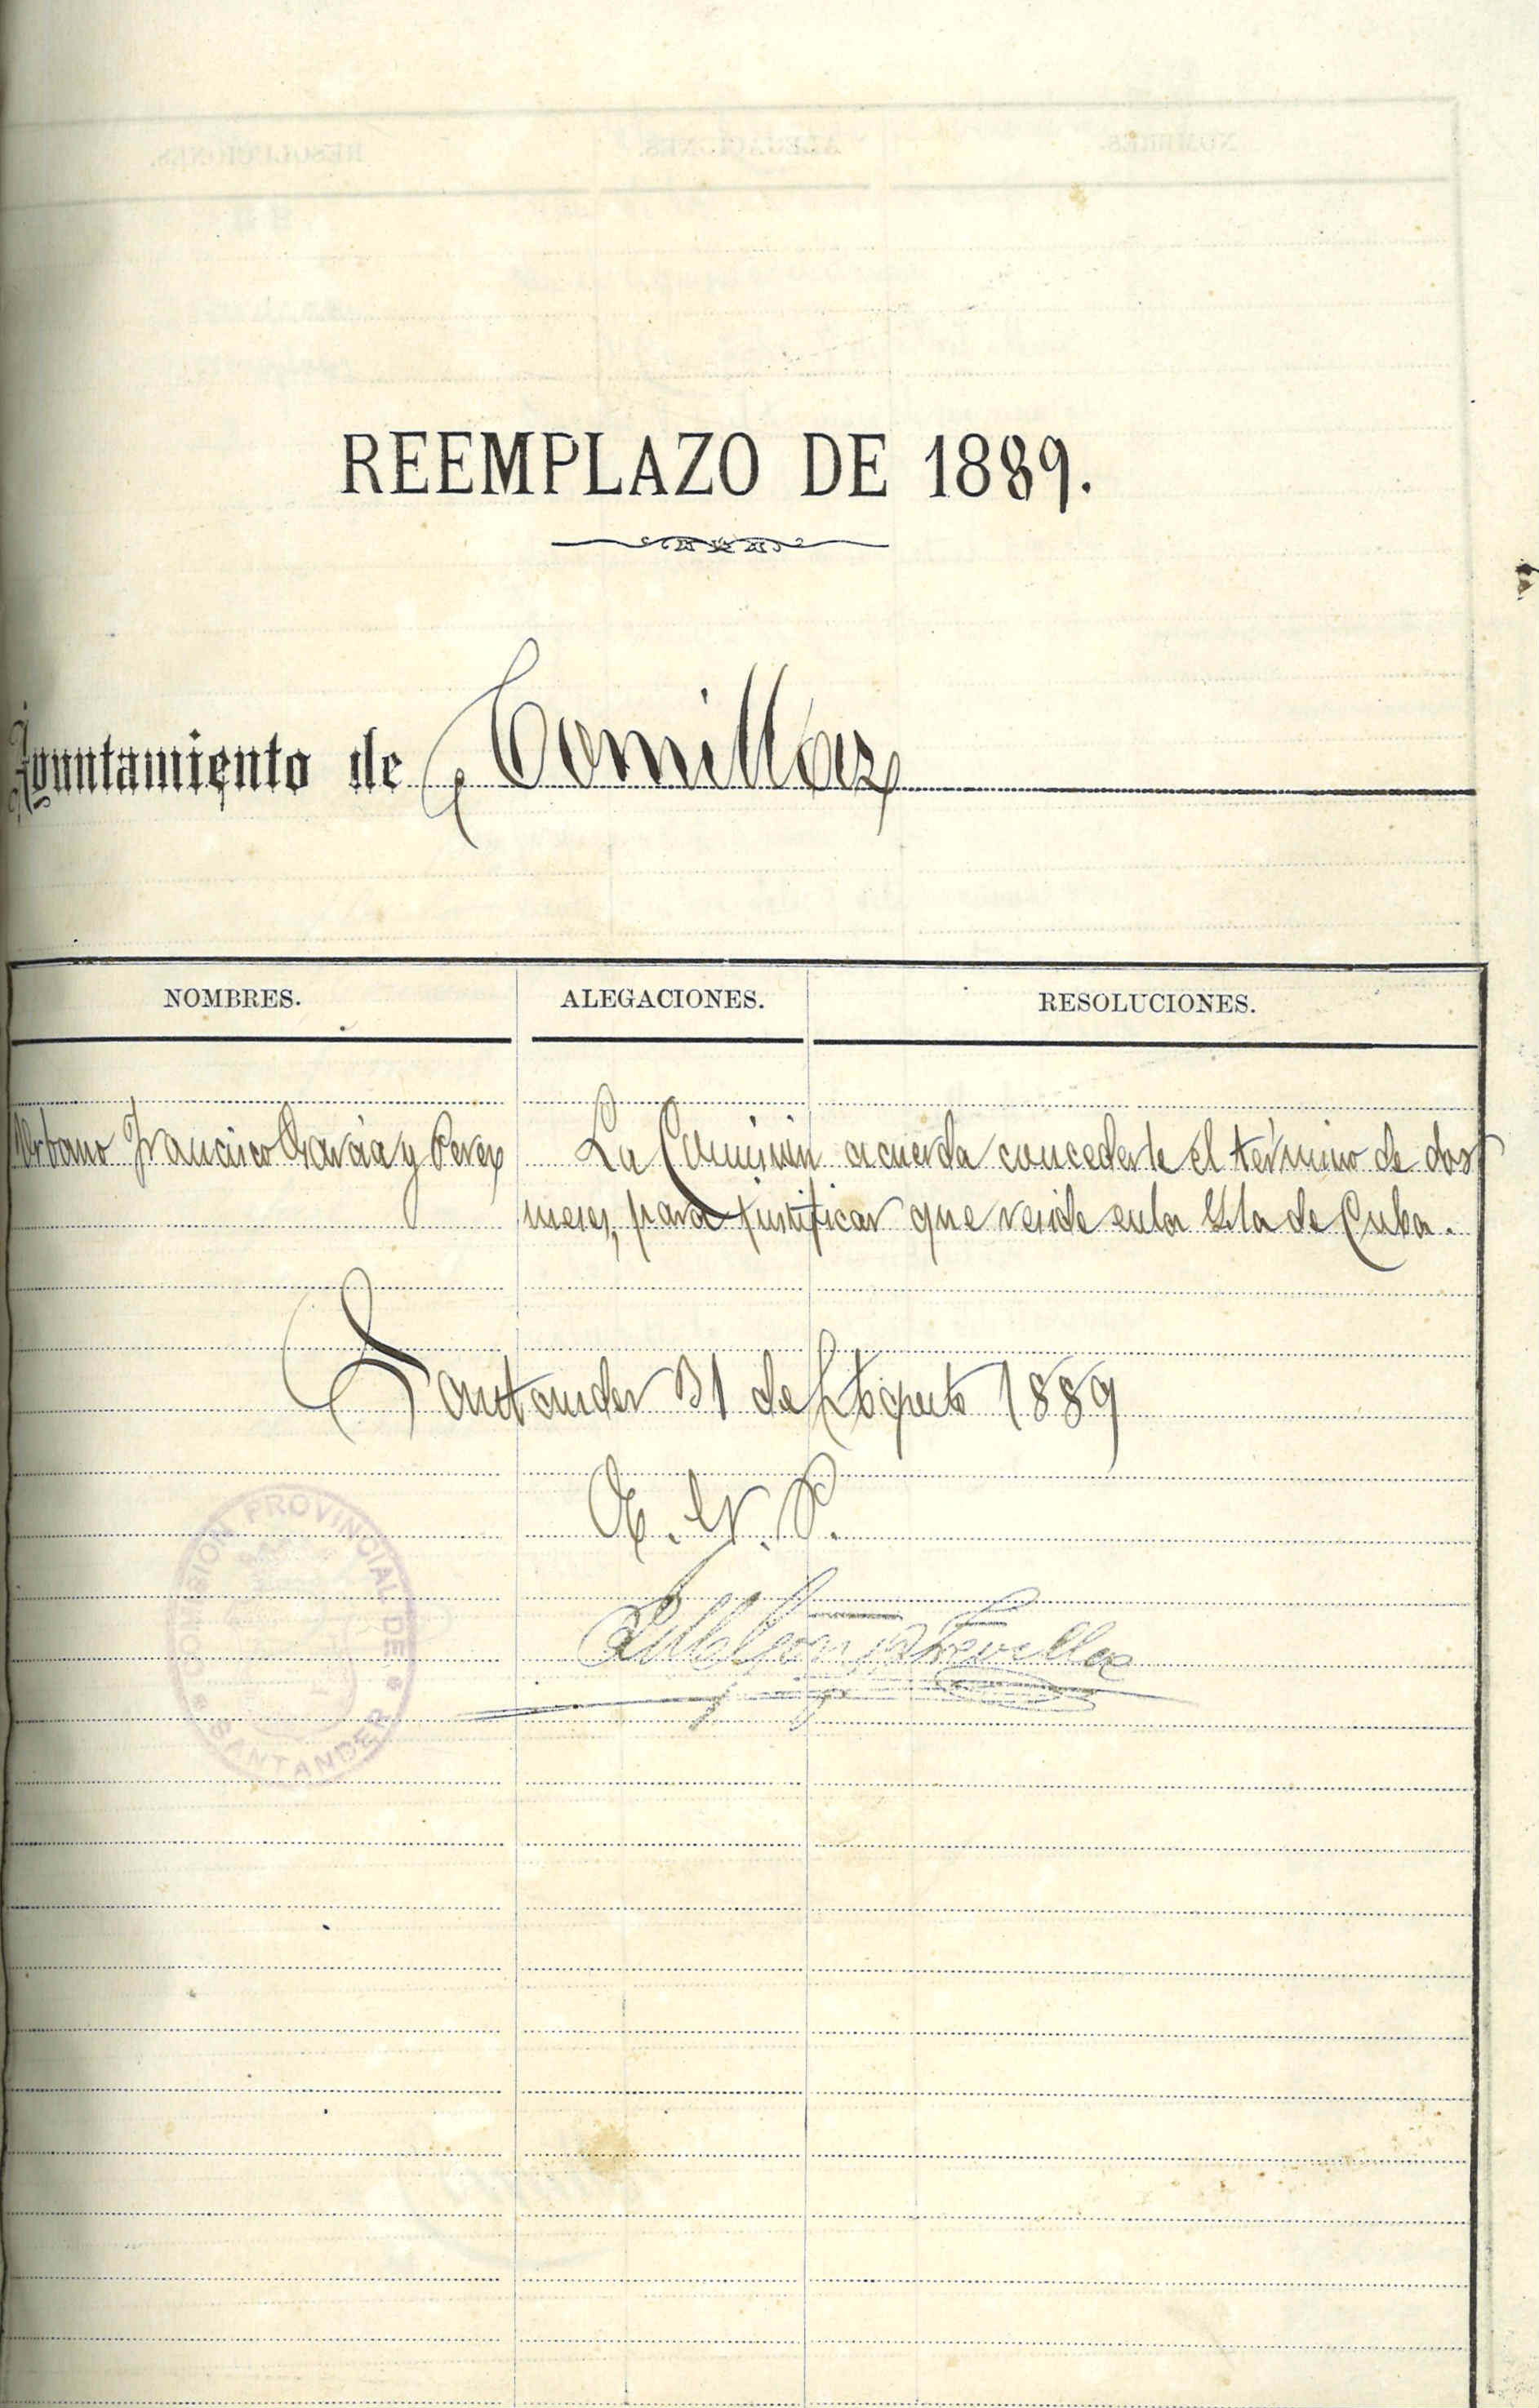 REEMPLAZO DE 1889.
Ayuntamiento de Comillas
NOMBRES. ALEGACIONES. RESOLUCIONES.
Urbano Francisco Garcia y Perez La Comisión acuerda concederle el término de dos
meses, para justificar que reside en la Isla de Cuba.
Santander 31 de Agosto 1889
El V. P.
COMISION PROVINCIAL DE
SANTANDER